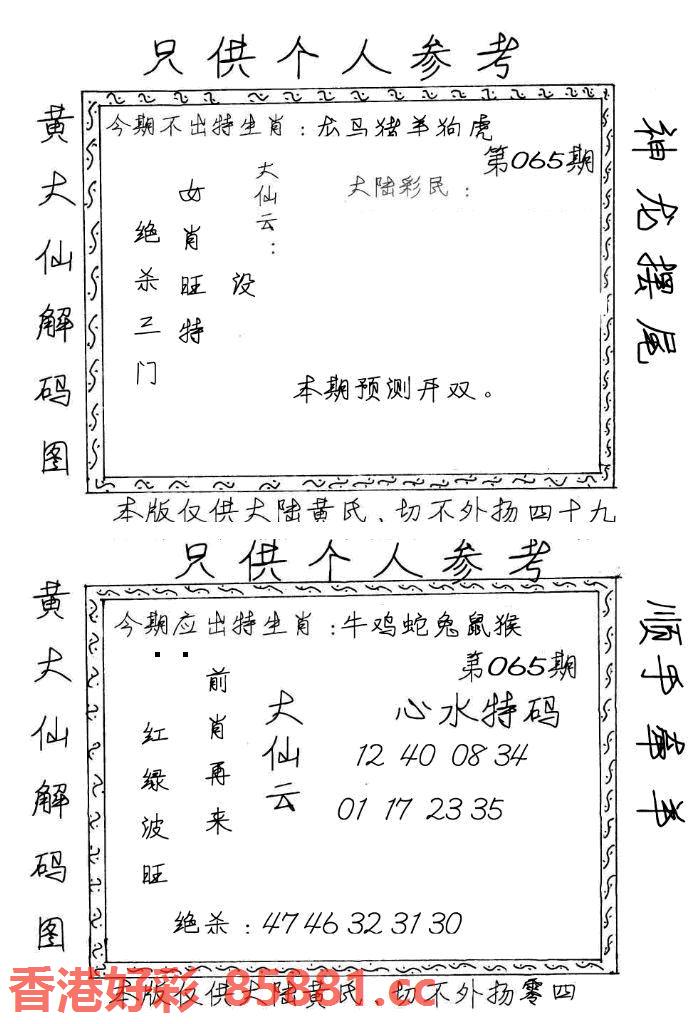 只供个人参考
黄大仙解码图
今期不出特生肖：龙马猪羊狗虎
第065期
大陆彩民：
大仙云：
设
女肖旺特
绝杀三门
本期预测开双。
神龙摆尾
本版仅供大陆黄氏、切不外扬四十九
只供个人参考
黄大仙解码图
今期应出特生肖：牛鸡蛇兔鼠猴
第065期
心水特码
12 40 08 34
01 17 23 35
大仙云
前肖再来
红绿波旺
绝杀：47 46 32 31 30
顺手牵羊
本版仅供大陆黄氏、切不外扬零四
香港好彩 85881.cc